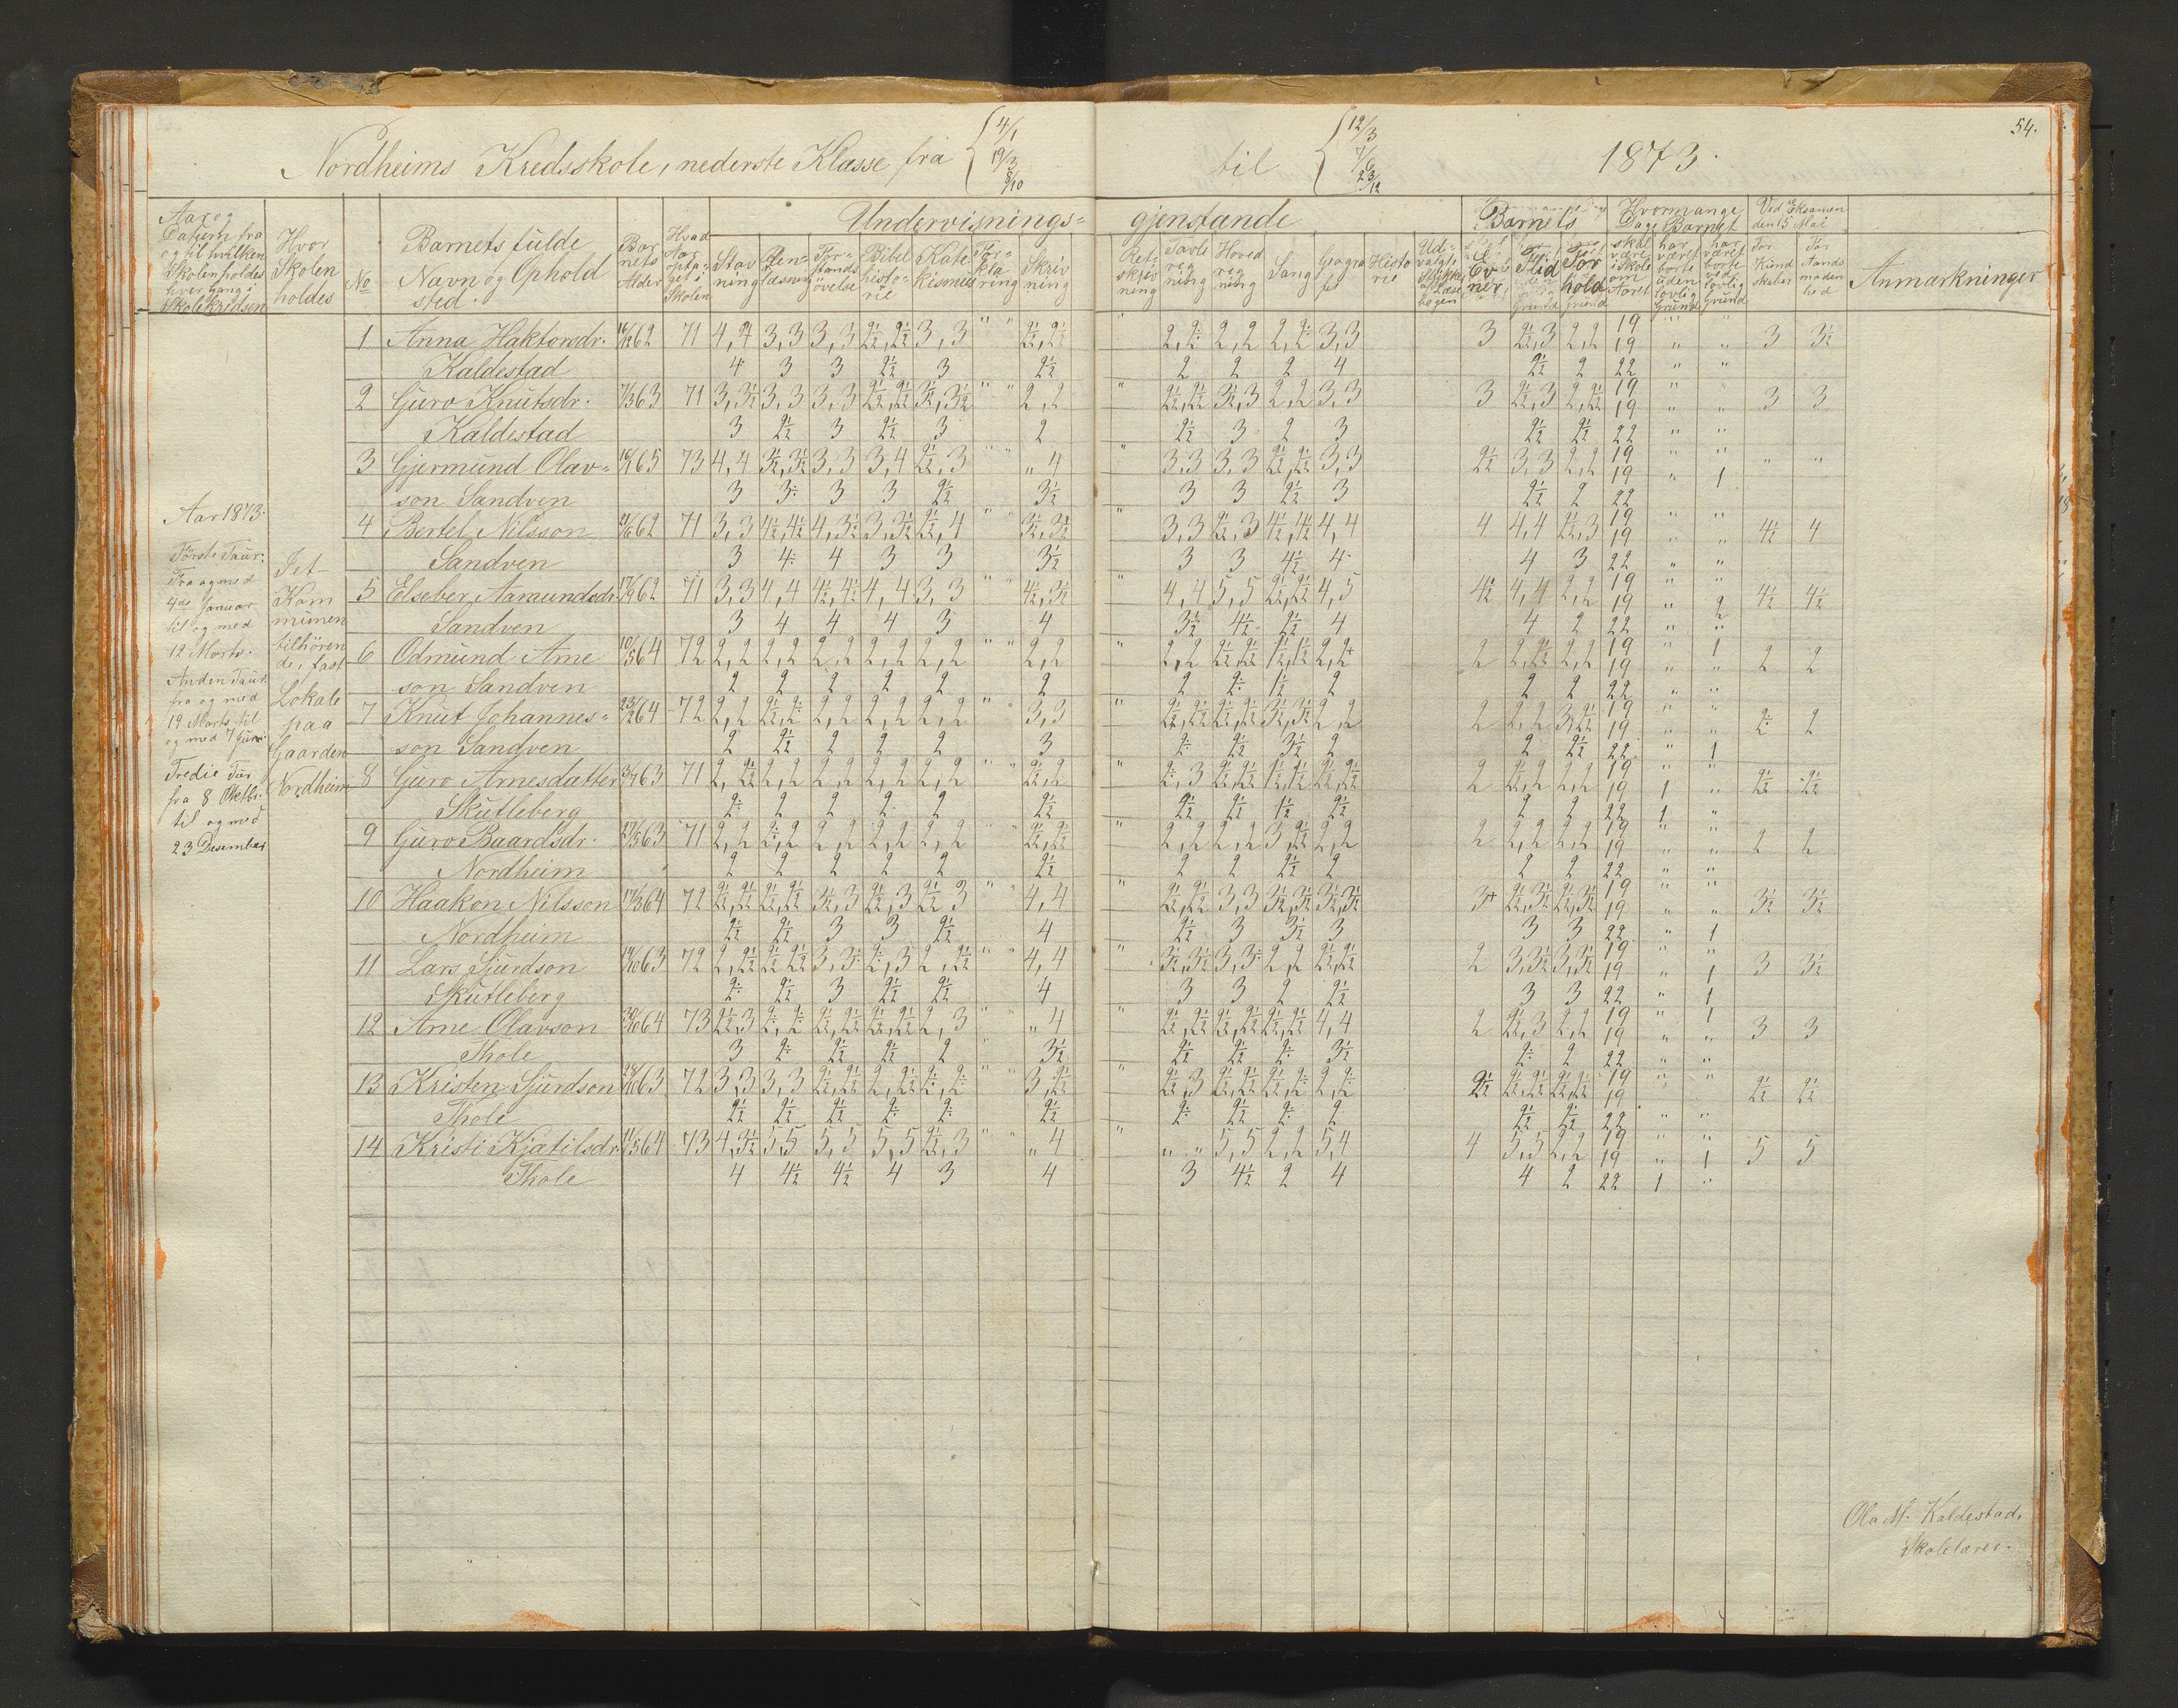 54.
Nordheims Kredsskole, nederste Klasse fra { 4/1 19/3 8/10 til { 12/3 7/6 23/12 1873.
Aar og Datum fra og til hvilken Skolen holdes hver gang i Skolekredsen
Hvor Skolen holdes
No
Barnets fulde Navn og Opholdsted.
Barnets Alder
Hvad Aar optaget i Skolen
Undervisnings= gjenstande
Stavning
Renlæsning
Forstandsøvelse
Bibelhistorie
Katekismus
Forklaring
Skrivning
Retskrivning
Tavleregning
Hovedregning
Sang
Geografi
Historie
Udvalgte Stykker af Læsebogen
Barnets
Evner
Flid
Forhold
Hvormange Dage Barnet
skal være i Skole om Aaret
har været borte uden lovlig Grund
har været borte ved lovlig Grund
Ved Eksamen den 15 Mai
For Kundskaber
For Aandsmodenhed
Anmærkninger
Aar 1873.
Første Taur: Fra og med 4de Januar til og med 12 Marts.
Anden Taur: fra og med 19 Marts til og med 7 Juni.
Tredie Tur fra 8 Oktbr. til og med 23 Desember
I et Kommunen tilhørende, fast Lokale paa Gaarden Nordheim
1 Anna Haktorsdr. 16/12 62 71 4, 4 3, 3 3, 3 2½, 2½ 3, 3 " " 2½, 2½ " 2, 2÷ 2, 2 2, 2÷ 3, 3 3 2½, 3 2, 2 19 19 " " 3 3½
Kaldestad 4 3 3 2½ 3 2½ 2 2 2 4 2½ 2 22 " "
2 Guro Knutsdr. 7/3 63 71 3, 3½ 3, 3 3, 3 2½, 2½ 3½, 3½ " " 2, 2 " 2½, 2½ 3½, 3 2, 2 3, 3 3 2½, 3 2, 2½ 19 19 " " 3 3
Kaldestad 3 2½ 3 2½ 3 2 2½ 3 2 3 2½ 2½ 22 " "
3 Gjermund Olav= 16/1 65 73 4, 4 3½, 3½ 3, 3 3, 4 2½, 3 " " " 4 " 3, 3 3, 3 2½, 2½ 3, 3 2½ 3, 3 2, 2 19 19 " 1 " "
son Sandven 3 3÷ 3 3 2½ 3½ 3 3 2½ 3 2½ 2 22 " "
4 Bertel Nilsson 21/6 62 71 3, 3 4½, 4½ 4, 3½ 3, 3½ 2½, 4 " " 3½, 3½ 3, 3 2½, 3 4½, 4½ 4, 4 4 4, 4 2½, 3 19 19 " " 4½ 4
Sandven 3 4 4 3 3 3½ 3 3 4½ 4 4 3 22 " "
5 Elseber Aamundsdr. 17/9 62 71 3, 3 4, 4 4½, 4½ 4, 4 3, 3 " " 4½, 3½ " 4, 4 5, 5 2½, 2½ 4, 5 4½ 4, 4 2, 2 19 19 " 2 4½ 4½
Sandven 3 4 4 4 3 4 3½ 4½ 2½ 4 4 2 22 " "
6 Odmund Arne 10/5 64 72 2, 2 2, 2 2, 2 2, 2 2, 2 " " 2, 2 " 2, 2 2½, 2½ 1½, 1½ 2, 2+ 2 2, 2½ 2, 2 19 19 " 1 2 2
son Sandven 2 2 2 2 2 2 2 2÷ 1½ 2 2 2 22 " "
7 Knut Johannes= 23/2 64 72 2, 2 2½, 2÷ 2, 2 2, 2 2, 2 " " 3, 3 " 2½, 2½ 2½, 2½ 3½, 3½ 2, 2 2 2, 2 3, 2½ 19 19 " " 2÷ 2
son Sandven 2 2½ 2 2 2 3 2÷ 2½ 3½ 2 2 2½ 22 " 1
8 Guro Arnesdatter 3/4 63 71 2, 2½ 2, 2 2, 2 2, 2 2, 2 " " 2½, 2 " 2÷, 3 2½, 2½ 1½, 1½ 2½, 2½ 2 2½, 2 2, 2 19 19 1 " 2½ 2½
Skutleberg 2÷ 2 2 2 2 2½ 2½ 2½ 1½ 2½ 2 2 22 1 "
9 Guro Baardsdr. 27/5 63 71 2, 2 2÷, 2 2, 2 2, 2 2, 2 " " 2½, 2½ " 2, 2 2, 2 3, 2½ 2, 2 2 2, 2 2, 2 19 19 " " 2 2
Nordheim 2 2 2 2 2 2½ 2 2 2½ 2 2 2 22 " "
10 Haakon Nilsson 17/3 64 72 2½, 2½ 2½, 2½ 3½, 3 2½, 3 2½, 3 " " 4, 4 " 2½, 2½ 3, 3 3½, 3½ 3½, 3½ 3+ 2½, 3½ 2½, 3½ 19 19 " " 3½ 3½
Nordheim 2½ 2½ 3 3 2½ 4 2½ 3 3½ 3 3 3 22 " 1
11 Lars Sjurdson 14/10 63 72 2, 2½ 2½, 2½ 3, 3÷ 2÷, 3 2, 2½ " " 4, 4 " 3½, 3½ 3, 3÷ 2, 2 2½, 2½ 2 3, 3½ 3, 3½ 19 19 " 1 3 3½
Skutleberg 2÷ 2½ 3 2½ 2½ 4 3 3 2 2½ 3 3 22 " 1
12 Arne Olavson 30/10 64 73 2½, 3 2÷, 2÷ 2½, 2½ 2½, 2½ 2, 3 " " " 4 " 2½, 2½ 2½, 2½ 2½, 2½ 4, 4 2 2½, 3 2, 2 19 19 " 1 3 3
Thole 3 2÷ 2½ 2½ 2 3½ 2½ 2½ 2÷ 3½ 2÷ 2 22 " "
13 Kristen Sjurdson 29/10 63 72 3, 3 3, 3 2½, 2½ 2, 2½ 2÷, 2÷ " " 3, 2½ 2½, 3 2½, 2½ 2½, 2÷ 2, 2÷ 2½ 2½, 2½ 2½, 2½ 19 19 " " 2½ 2½
Thole 2½ 2½ 2½ 2÷ 2÷ 2½ 2÷ 2½ 2÷ 2 2½ 2½ 22 " "
14 Kristi Kjatilsdr. 11/5 64 73 4, 3½ 5, 5 5, 5 5, 5 2½, 3 " " " 4 " " " 5, 5 2, 2 5, 4 4 5, 5 2, 2 19 19 " 1 5 5
Thole 4 4½ 4½ 4 3 4 3 4½ 2 4 4 2 22 1 "
Ola M. Kaldestad,
Skolelærer.